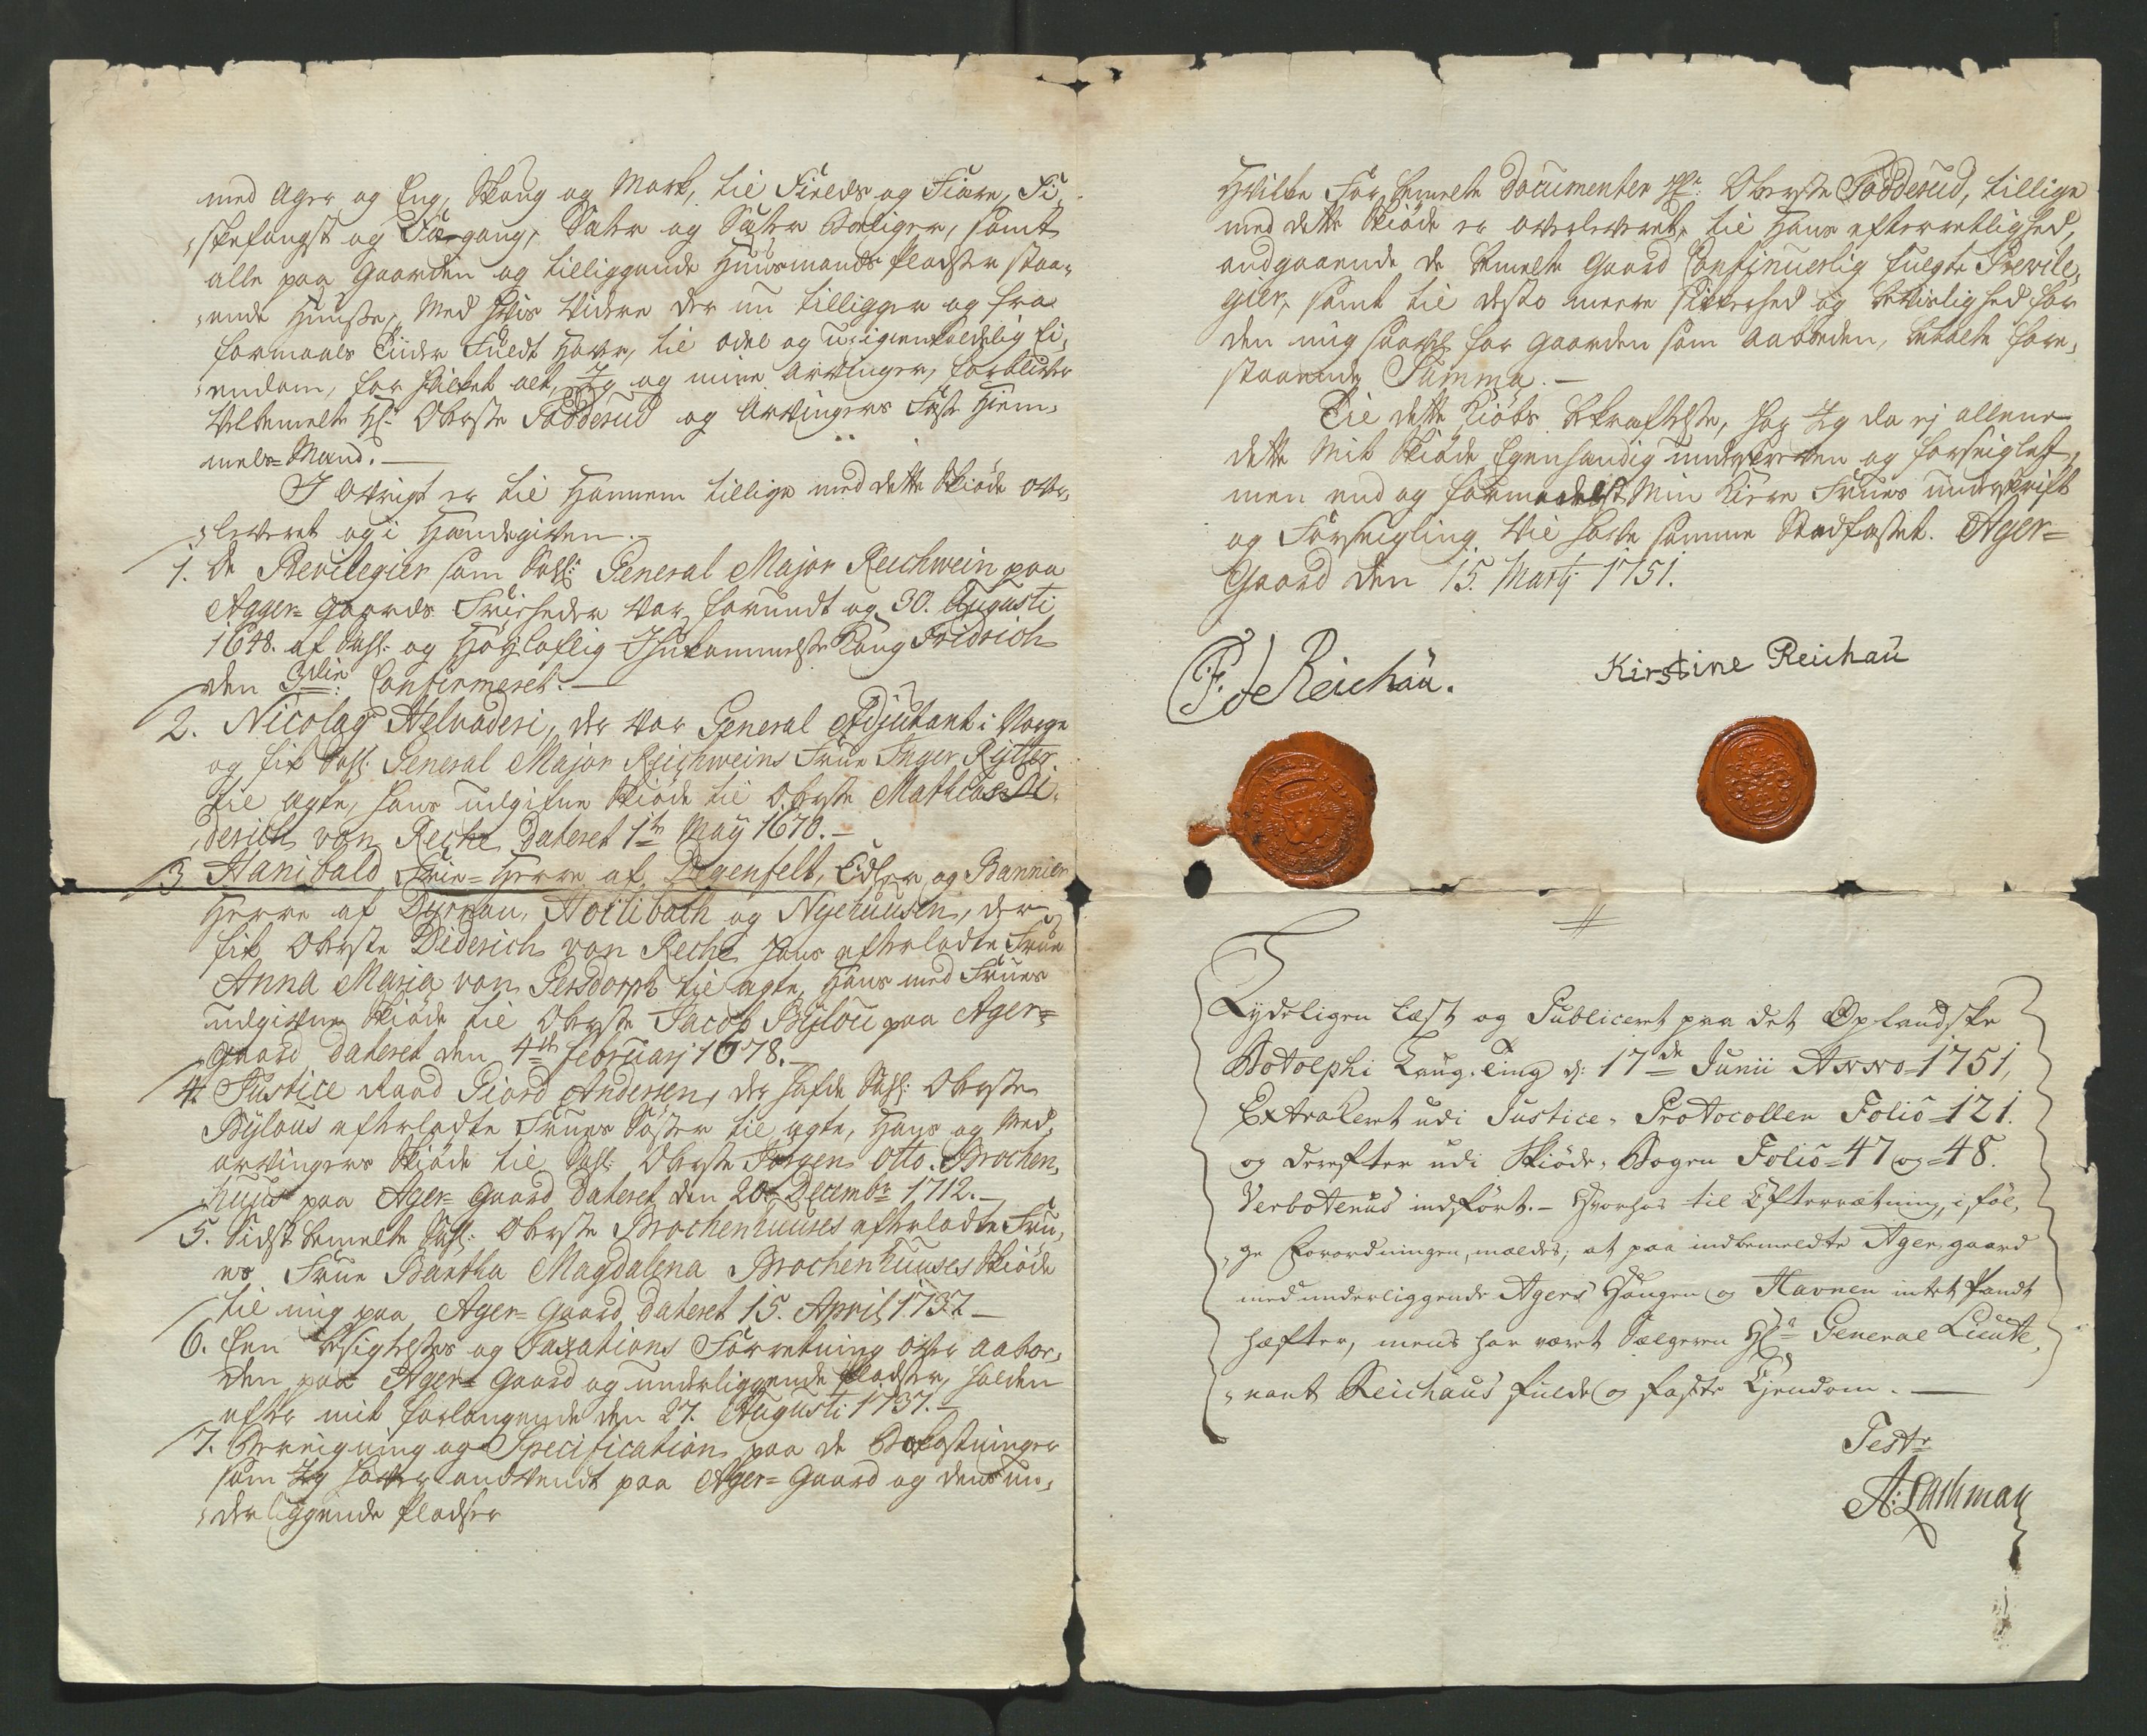 med Ager og Eng, Skoug og Mark, til Fields og Fiære, Fi,
,,skefangst og Fægang, Sæter og Sæter Boliger, samt
alle paa Gaarden og tilliggende Huusmands Pladser staa,
,,ende Huuse, Med hvis videre der nu tilligger og fra
formaals Tiider Fuldt Haver, til odel og u-igienkaldelig Ei,
,,endom, for hvilket alt, Jeg og mine Arvinger, forbliver
Velbemelte Hr: Oberste Todderud og Arvingers Faste Hiem,
mels-Mand.
I Øvrigt er til Hannem tillige med dette Skiøde over,
,,leveret og i Hændegiven.
1. De Previlegier som Sahl: General Major Reichwein paa
Agger-Gaards Friheder var forundt og 30. Augusti
1648. af Sahl: og Høyloflig Ihukommelse Kong Fridrich
den 3die: Confirmeret.
2. Nicolay Helvaderi, der var General Adjutant i Norge
og fik Sahl: General Major Reichweins Frue Inger Rytter.
til ægte, hans udgifne Skiøde til Oberste Mathias Di,
,,derich von Reche dateret 1te May 1670.
3 Hanibald Frie-Herre af Degenfelt, Edler og Bannier
Herre af Dyrnau, Hoilibach og Nyehuusen, der
fik Oberste Diderich von Reche hans efterladte Frue
Anna Maria von Gersdorph til ægte, Hans med Frues
udgivne Skiøde til Oberste Jacob Bylou paa Ager-
gaard dateret den 4de Februarj 1678.
4. Justice Raad Giord Andersen, der hafde Sahl: Oberste
Bylous efterladte Frues Søster til ægte, Hans og Med,
arvingers Skiøde til Sahl: Oberste Jørgen Otto Brochen,
huus paa Ager-Gaard dateret den 20de Decembr 1712.
5. Sidst bemelte Sahl: Oberste Brochenhuuses efterladte Fru,
es Frue Bartha Magdalena Brochenhuuses Skiøde
til mig paa Ager-Gaard dateret 15. April 1737.
6. Een Besigtelses og Taxations Forretning over Aaboe,
den paa Ager-Gaard og underliggende Pladser, holden
efter mit forlangende den 27. Augusti 1737.
7. Bereigning og Specification paa de Bekostninger
som Jeg haver andvendt paa Ager-Gaard og dens un,
,,derliggende Pladser
Hvilke For bemelte Documenter Hr: Oberste Todderud, tillige
med dette Skiøde er overleveret, til Hans efterretlighed,
andgaaende de bemelte Gaard Continuerlig fulgte Previle,
gier, samt til desto meere sikkerhed og bevislighed for
den mig saavel for Gaarden som Aaboeden, betalte fore,
staaende Summa.
Til dette Kiøbs bekræftelse, har Jeg da ej allene
dette Mit Skiøde Egenhændig underskreven og forseiglet,
men end og formedelst Min Kiere Frues underskrift
og Forseigling Vil have samme Stadfæstet. Ager-
Gaard den 15. Martj 1751.
F. de Reichau.
Kirstine Reichau
Tydeligen læst og Publiceret paa det Oplandske
Botolphi Laug-Ting d: 17de Junii Anno 1751,
Extraheret udi Justice-Protocollen Folio 121.
og derefter udi Skiøde-Bogen Folio 47 og 48.
Verbotenus indført. Hvorhos til Efterretning, i føl,
,,ge Forordningen, meldes, at paa indbemeldte Ager gaard
med underliggende Agers Hougen og Havnen intet Pandt
hæfter, mens har været Sælgeren Hr General Lieute,
,,nant Reichaus fulde og faste Ejendom.
Test
A: Lachman